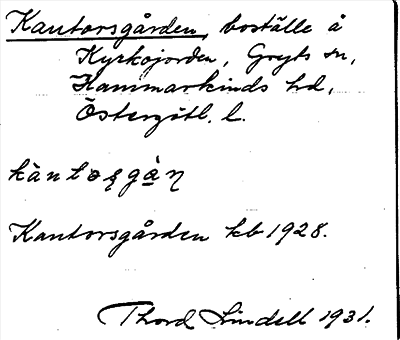 Kantorsgården, boställe å
Kyrkojorden, Gryts sn,
Hammarkinds hd,
Östergötl. l.
Kantorsgården kb 1928.
Thord Lindell 1931.